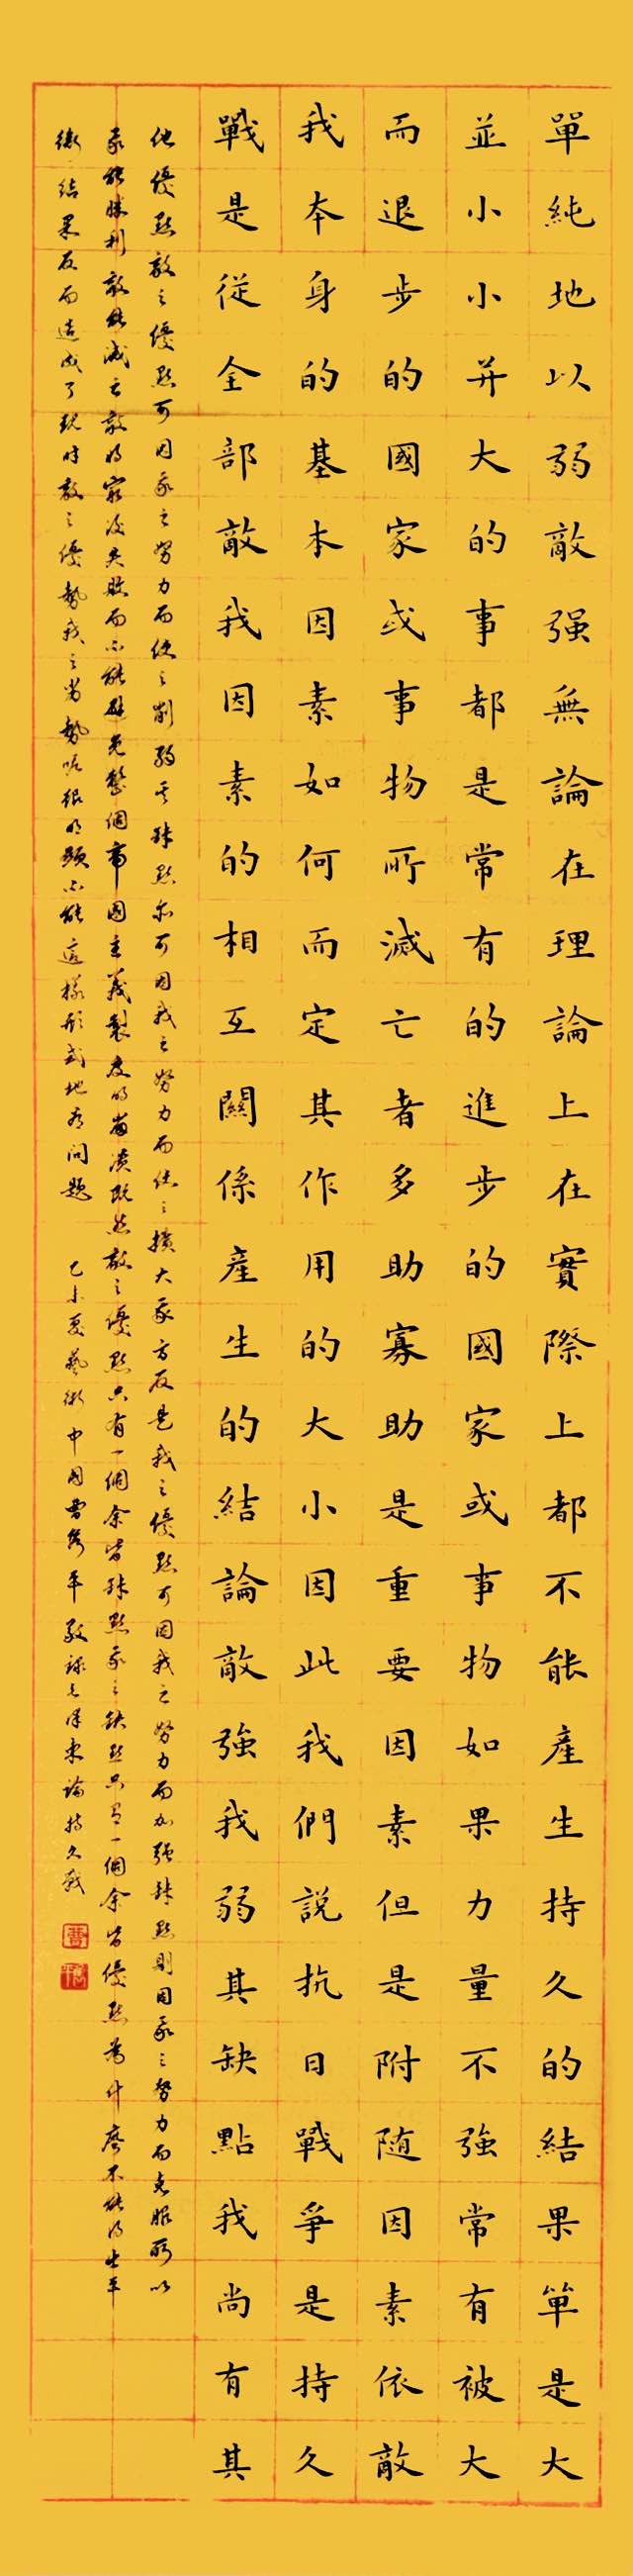 單純地以弱敵强無論在理論上在實際上都不能產生持久的結果單是大
並小小并大的事都是常有的進步的國家或事物如果力量不強常有被大
而退步的國家或事物所滅亡者多助寡助是重要因素但是附随因素依敵
我本身的基本因素如何而定其作用的大小因此我們說抗日戰爭是持久
戰是從全部敵我因素的相互關係產生的結論敵強我弱其缺點我尚有其
他優點敵之優點可因我之努力而使之削弱其缺點亦可因我之努力而使之擴大我方反是我之優點可因我之努力而加强缺點則因我之努力而克服所以
我能勝利敵能滅亡敵的窮後失敗而不能避免整個帝國主義製度的崩潰既然敵之優點只有一個余皆缺點我之缺點只有一個余皆優點為什麽不能得出平
衡結果反而造成了現時敵之優勢我之劣勢呢很明顯不能這樣形式地看問題 乙未夏藝術中國曹 平敬録毛澤東論持久戰